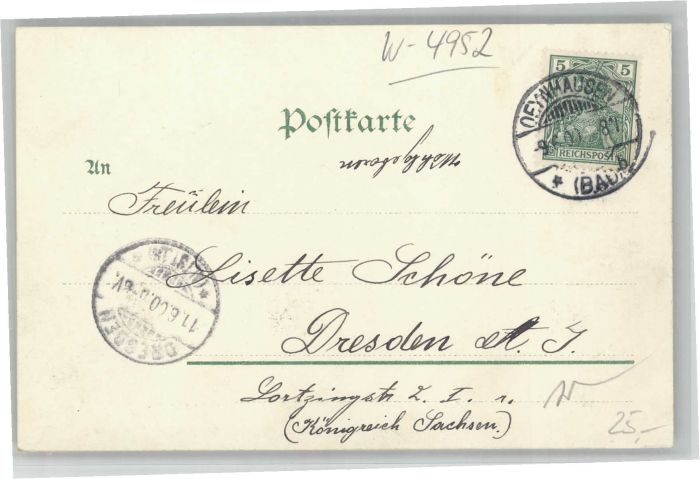 W-4952
5 5
REICHSPOST
OEYNHAUSEN
(BAD)
Postkarte
An
Fräulein
Lisette Schöne
Dresden A. J.
Lortzingstr. 2. I. r.
(Königreich Sachsen.)
DRESDEN
11.6.00
25,-